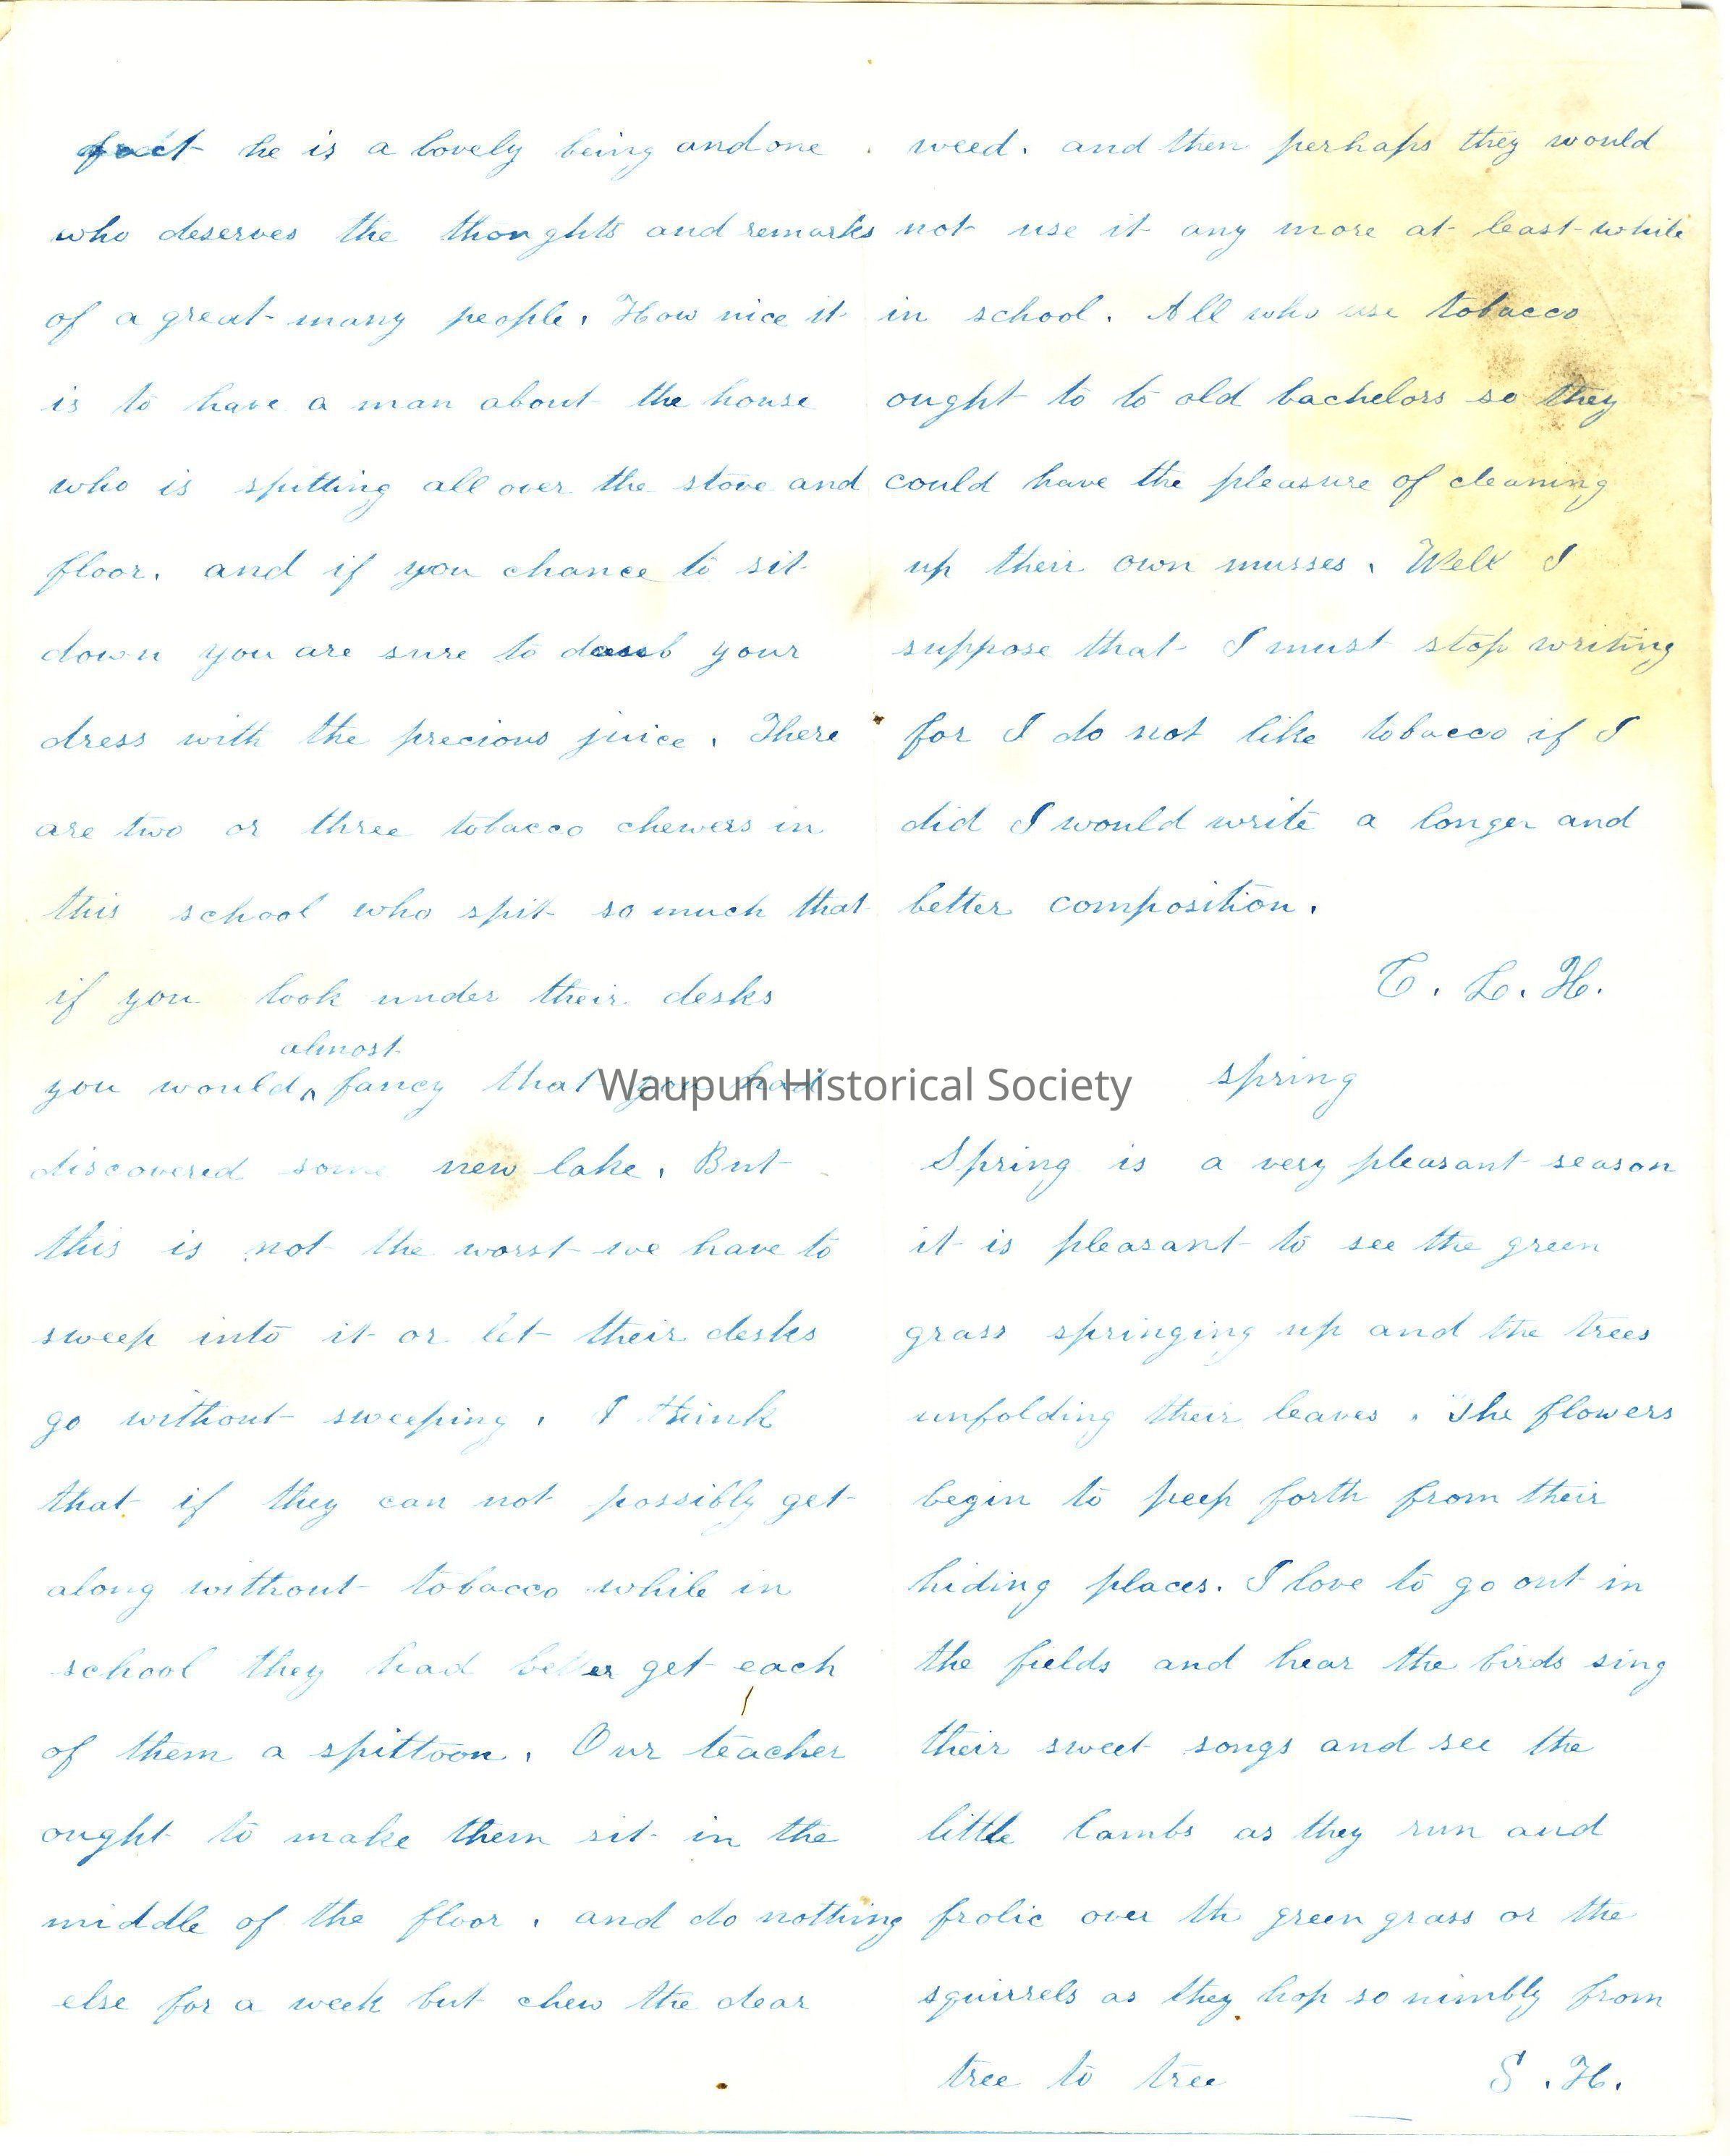 fact he is a lovely being and one
who deserves the thoughts and remarks
of a great many people. How nice it
is to have a man about the house
who is spitting all over the stove and
floor. and if you chance to sit
down you are sure to daub your
dress with the precious juice. There
are two or three tobacco chewers in
this school who spit so much that
if you look under their desks
almost
you would ‸ fancy that you had
discovered some new lake. But
this is not the worst we have to
sweep into it or let their desks
go without sweeping. I think
that if they can not possibly get
along without tobacco while in
school they had better get each
of them a spittoon. Our teacher
ought to make them sit in the
middle of the floor. and do nothing
else for a week but chew the dear
weed. and then perhaps they would
not use it any more at least while
in school. All who use tobacco
ought to to old bachelors so they
could have the pleasure of cleaning
up their own musses. Well I
suppose that I must stop writing
for I do not like tobacco if I
did I would write a longer and
better composition.
C. L. H.
spring
Spring is a very pleasant season
it is pleasant to see the green
grass springing up and the trees
unfolding their leaves. The flowers
begin to peep forth from their
hiding places. I love to go out in
the fields and hear the birds sing
their sweet songs and see the
little lambs as they run and
frolic over th green grass or the
squirrels as they hop so nimbly from
tree to tree S. H.
Waupun Historical Society